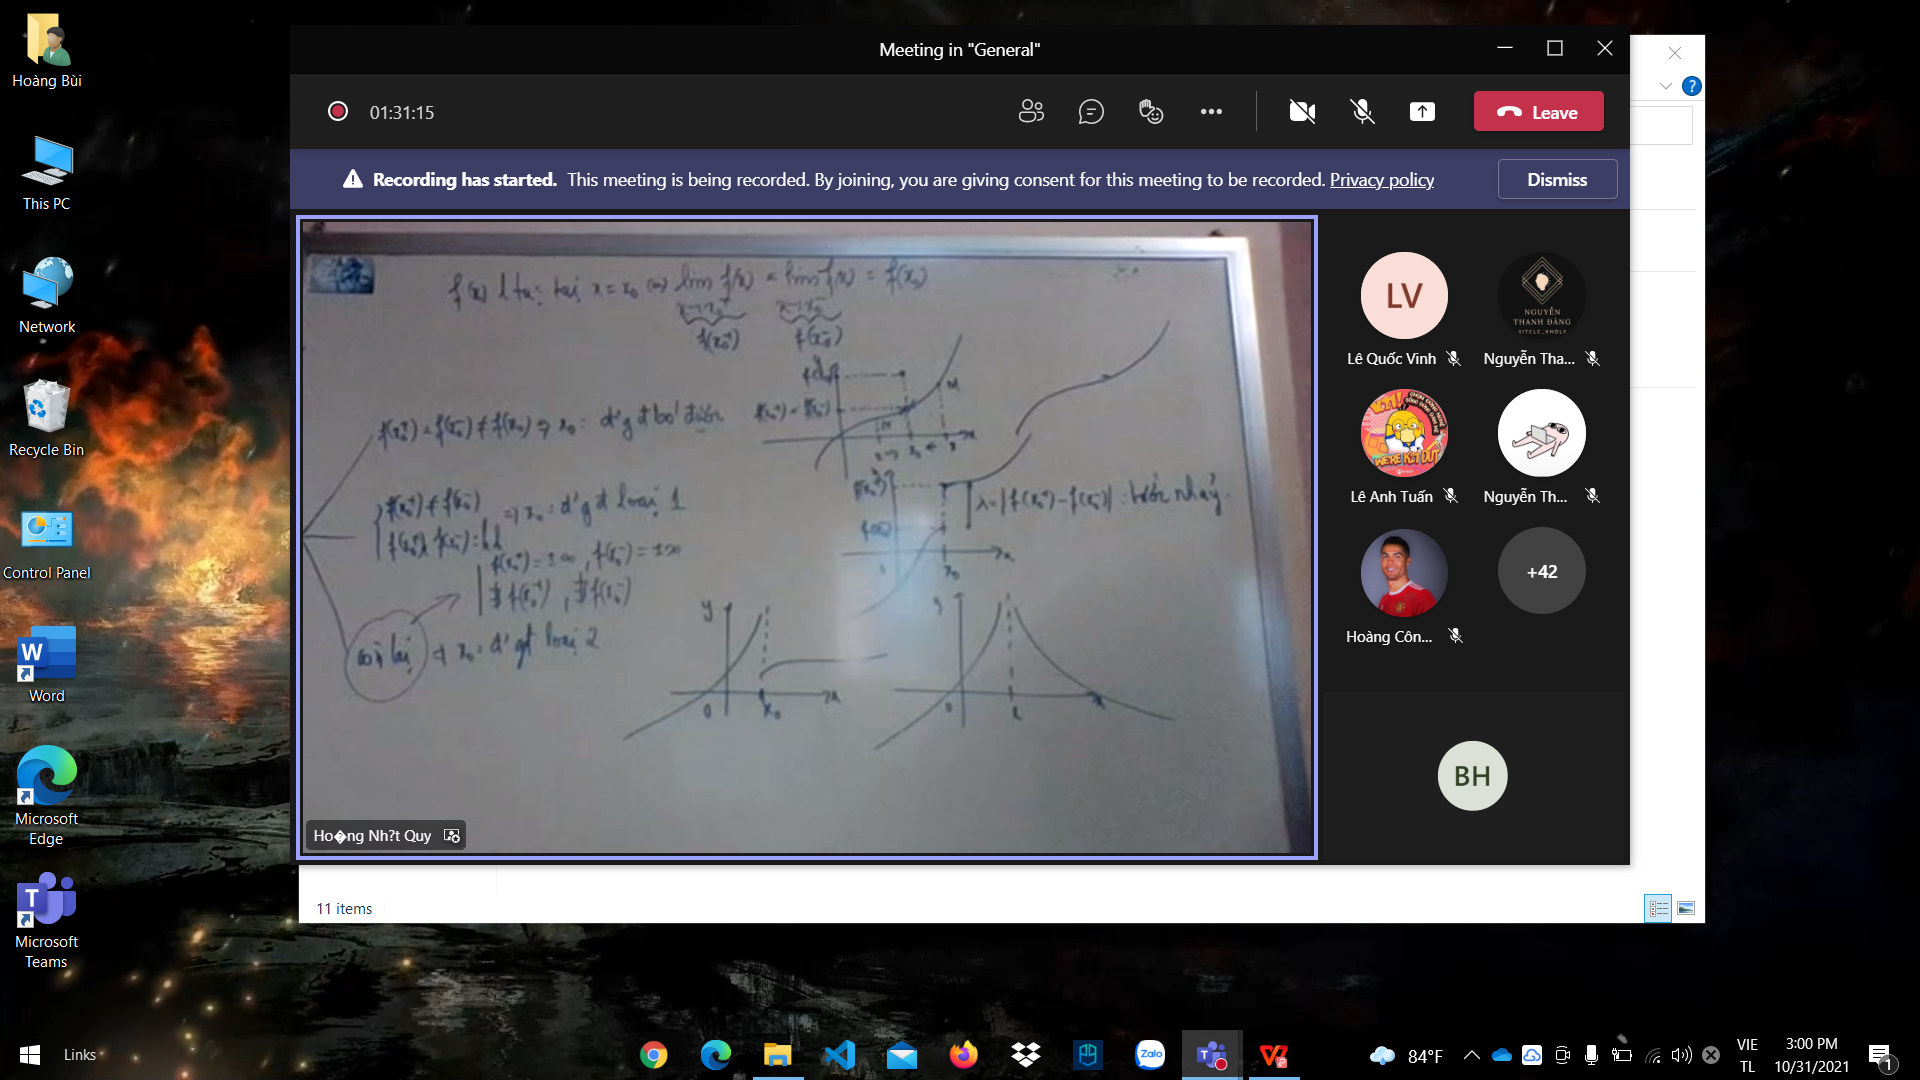 Hoàng Bùi
This PC
Network
Recycle Bin
Control Panel
Word
Microsoft Edge
Microsoft Teams
Meeting in "General"
01:31:15
Leave
Recording has started. This meeting is being recorded. By joining, you are giving consent for this meeting to be recorded. Privacy policy
Dismiss
f(x) l tục tại x = x₀ (⇔) lim f(x) = lim f(x) = f(x₀)
x→x₀⁺ x→x₀⁻
f(x₀⁺) f(x₀⁻)
f(x₀⁺) = f(x₀⁻) ≠ f(x₀) ⇒ x₀ : đ' gđ bỏ được
f(x₀⁺) = f(x₀⁻)
f(x₀⁺) ≠ f(x₀⁻)
⇒ x₀ : đ' gđ loại 1
f(x₀⁺), f(x₀⁻) : hh
λ = |f(x₀⁺) - f(x₀⁻)| : bước nhảy
f(x₀⁺) = ±∞, f(x₀⁻) = ±∞
∄ f(x₀⁺), ∄ f(x₀⁻)
còn lại ⇒ x₀ : đ' gđ loại 2
y
0 x₀ x
Ho�ng Nh?t Quy
LV
Lê Quốc Vinh
NGUYỄN
THANH ĐĂNG
Nguyễn Tha...
Lê Anh Tuấn
Nguyễn Th...
Hoàng Côn...
+42
BH
11 items
Links
Zalo
84°F
VIE
TL
3:00 PM
10/31/2021
1